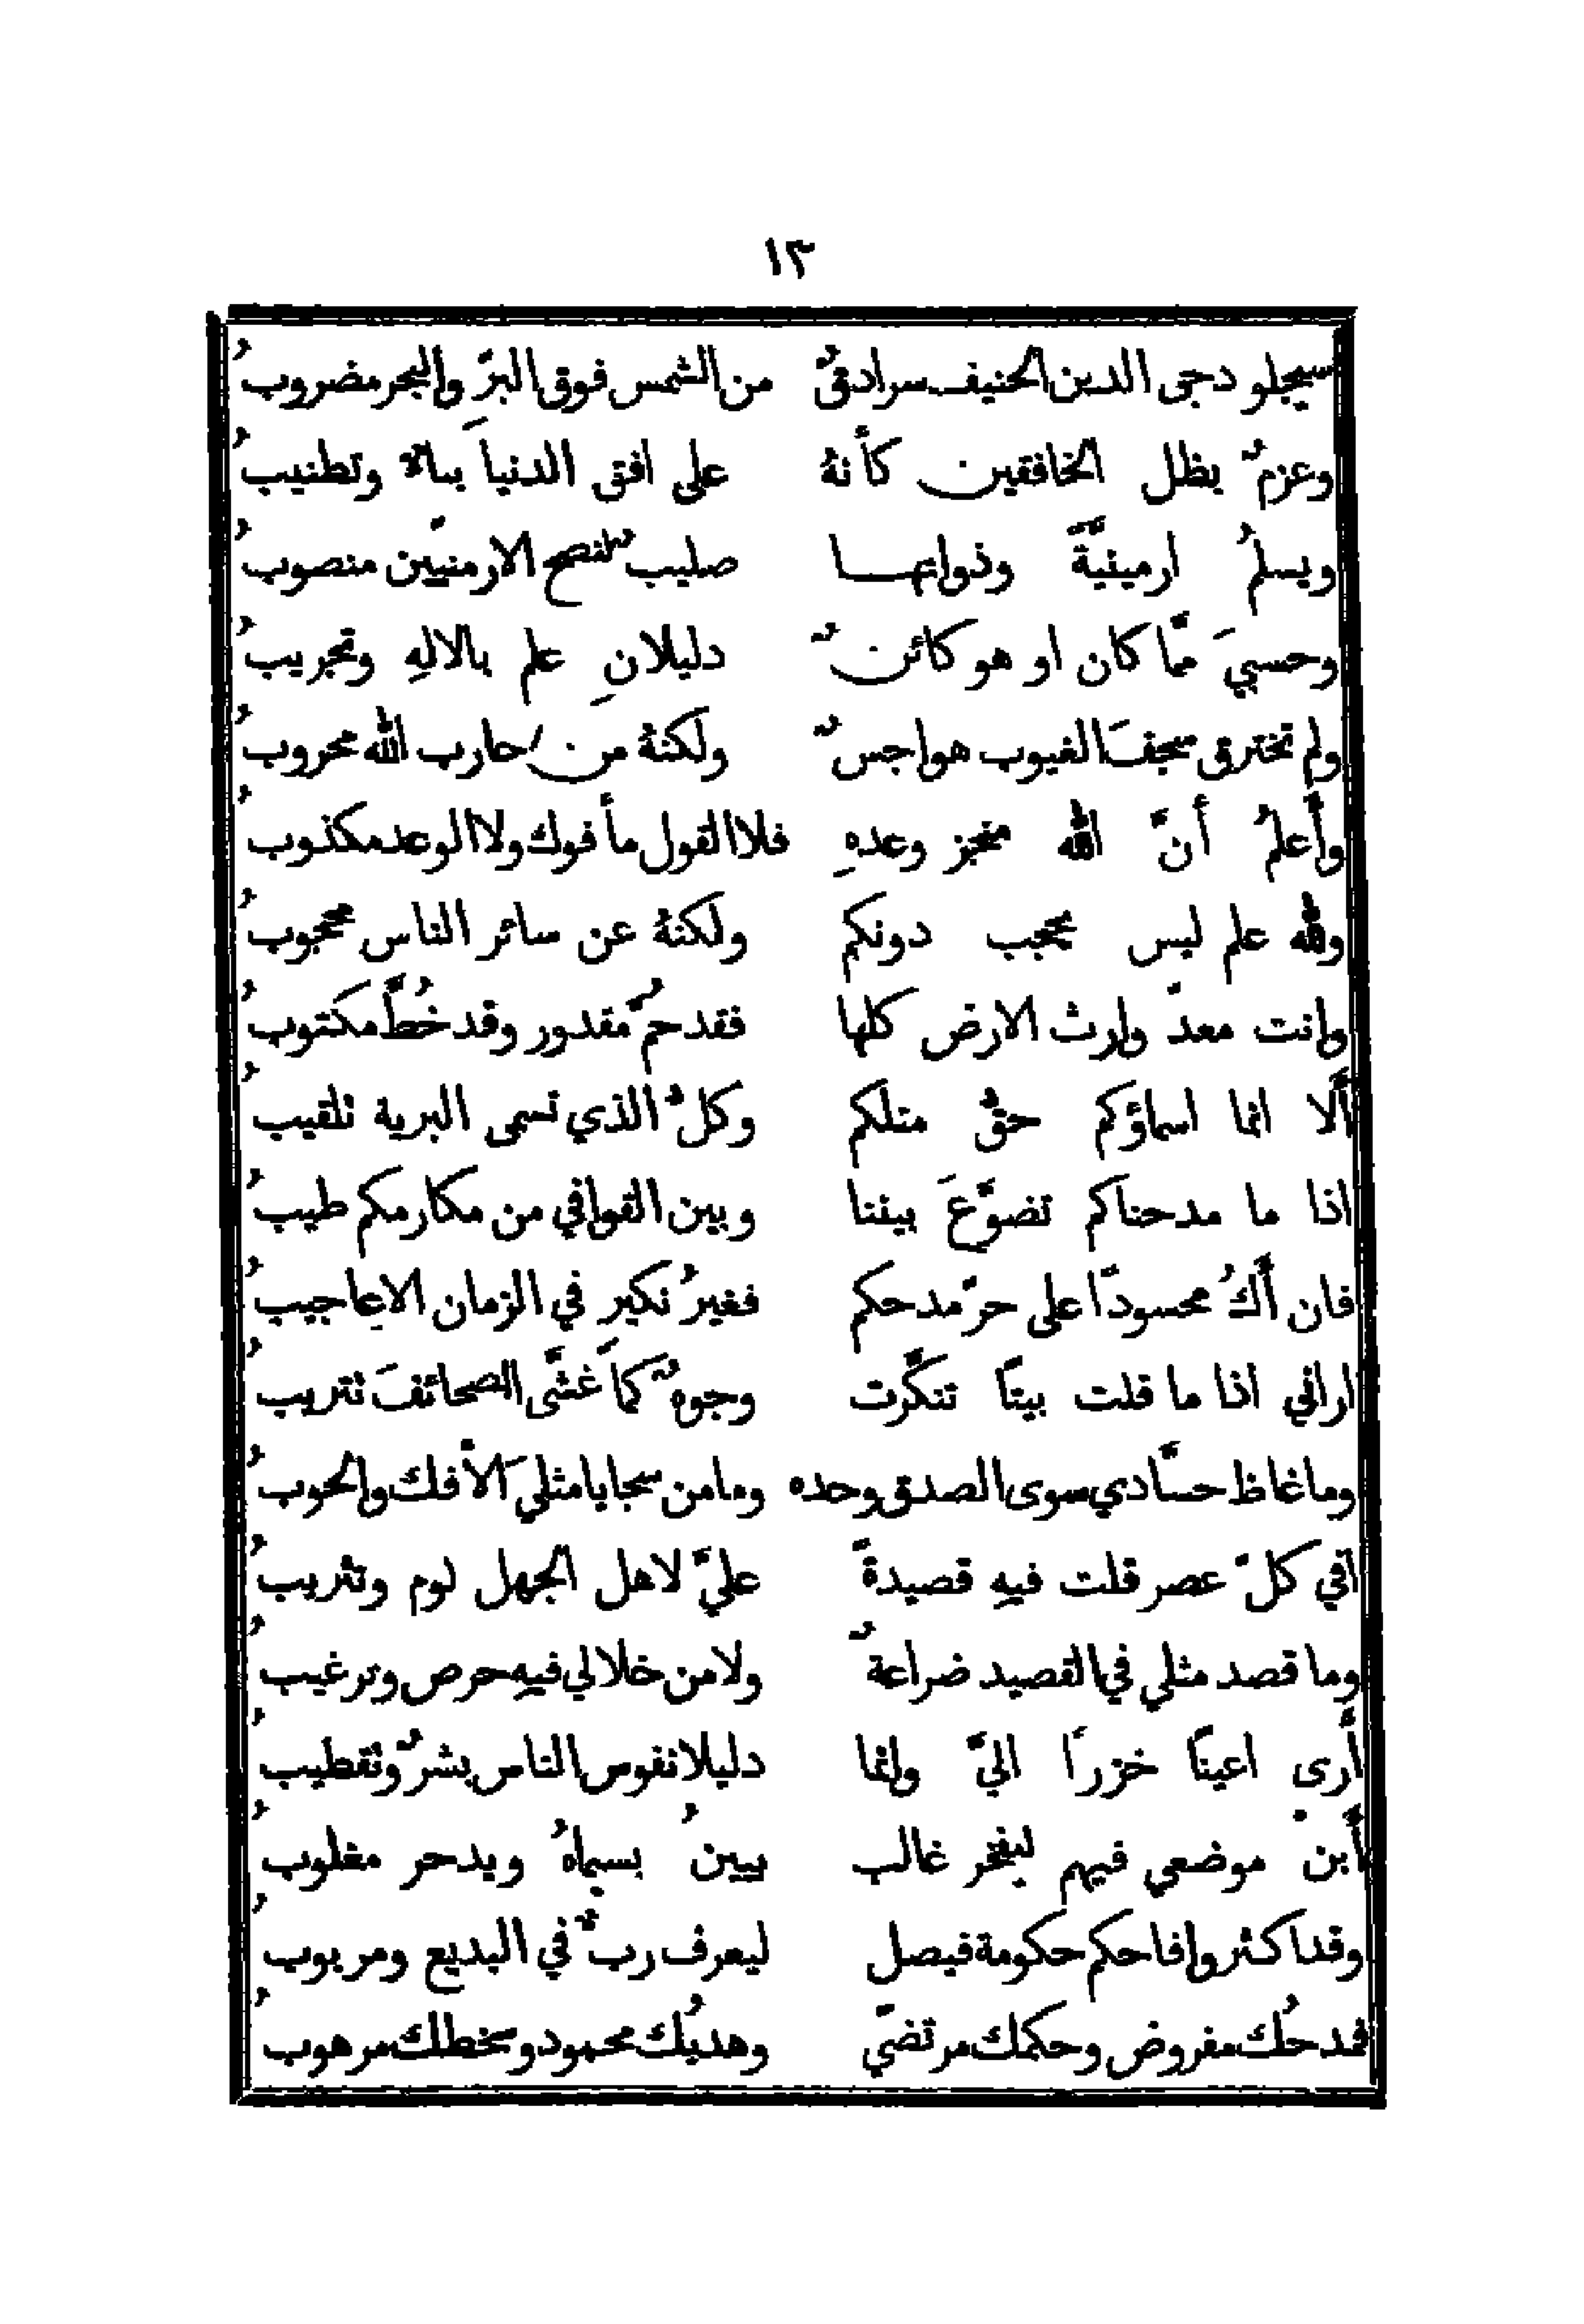 ١٣
سيجلو دجى الدين الحنيف سرادقٌ من الشمس فوق البرِّ والبحر مضروبُ
وعزمٌ يظل الخافقين كأنهُ على افق الدنيا بناءٌ وتطنيبُ
ويسلمُ ارمينيَّةً وذواتها صليبٌ لنصح الارمنيّين منصوبُ
وحسبيَ ممَّا كان او هو كائنٌ دليلانِ علم بالالهِ وتجريبُ
ولم تخترق سجفَ الغيوب هواجسٌ ولكنهُ من حارب الله محروبُ
وأَعلمُ أَنَّ الله منجز وعدهِ فلا القول مأفوك ولا الوعد مكذوبُ
ولله علم ليس يحجب دونكم ولكنهُ عن سائر الناس محجوبُ
وانت معدّ وارث الارض كلها فقد حُمَّ مقدور وقد خُطَّ مكتوبُ
أَلا انما اسماؤكم حقُّ مثلكم وكلُّ الذي تسمى البرية تلقيبُ
اذا ما مدحناكم تضوَّعَ بيننا وبين القوافي من مكارمكم طيبُ
فان أَكُ محسودًا على حرّ مدحكم فغيرُ نكيرٍ في الزمان الاعاجيبُ
اراني اذا ما قلت بيتًا تنكَّرت وجوهٌ كما غشَّى الصحائفَ تتريبُ
وما غاظ حسَّادي سوى الصدق وحده وما من سجايا مثليَ الأفك والحوبُ
أفي كلّ عصر قلت فيهِ قصيدةً عليَّ لاهل الجهل لوم وتثريبُ
وما قصد مثلي في القصيد ضراعةٌ ولا من خلالي فيهِ حرص وترغيبُ
أَرى اعينًا خزرًا اليَّ وانما دليلا نفوس الناس بشرٌ وتقطيبُ
أَبن موضعي فيهم ليفخر غالب يبينُ بسيماهُ ويدحر مغلوبُ
وقد اكثروا فاحكم حكومة فيصل ليعرف ربٌّ في البديع ومربوبُ
فمدحُك مفروض وحكمك مرتضًي وهديُك محمود وسخطك مرهوبُ